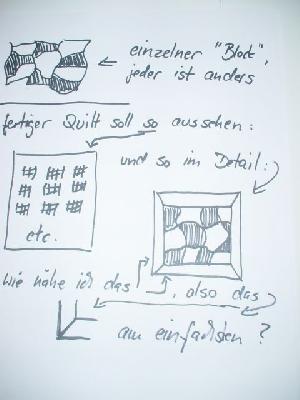 einzelner "Block",
jeder ist anders
fertiger Quilt soll so aussehen:
und so im Detail:
etc.
wie nähe ich das , also das
am einfachsten ?